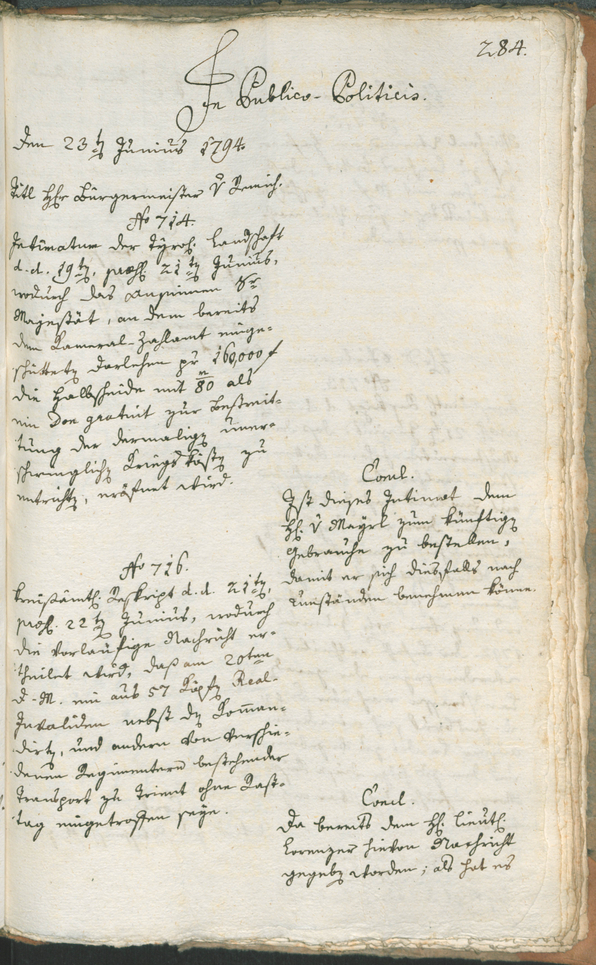 284.
In Publico-Politicis.
Den 23tn Junius 1794.
Titl Hr Bürgermeister v
No 714.
Intimatum der Tyrol. Landschaft
d.d. 19tn, praes. 21tn Junius,
wodurch das Ansinnen Sr
Majestät, an dem bereits
dem Kameral-Zahlamt einge-
schütteten Darlehen pr 160,000 f
die Halbscheide mit 80/m als
ein Don gratuit zur Bestreit-
tung der dermalign uner-
schwinglichn Kriegskösten zu
entrichtn, eröfnet wird.
Concl.
Ist dieses Intimat dem
Hl. v Mayrl zum künftign
Gebrauche zu bestellen,
damit er sich diesfalls nach
Umständen benehmen könne.
No 716.
Kreisämtl. Reskript d.d. 21tn,
praes. 22tn Junius, wodurch
die vorläufige Nachricht er-
theilet wird, daß am 20ten
d. M. ein aus 57 Köpfn Real-
Invaliden nebst dn Komman-
dirtn, und andern von verschie-
denen Regimentern bestehender
Transport zu Trient ohne Rast-
tag eingetroffen seye.
Concl.
Da bereits dem Hl. Lieut.
Lorenzer hievon Nachricht
gegebn worden; als hat es